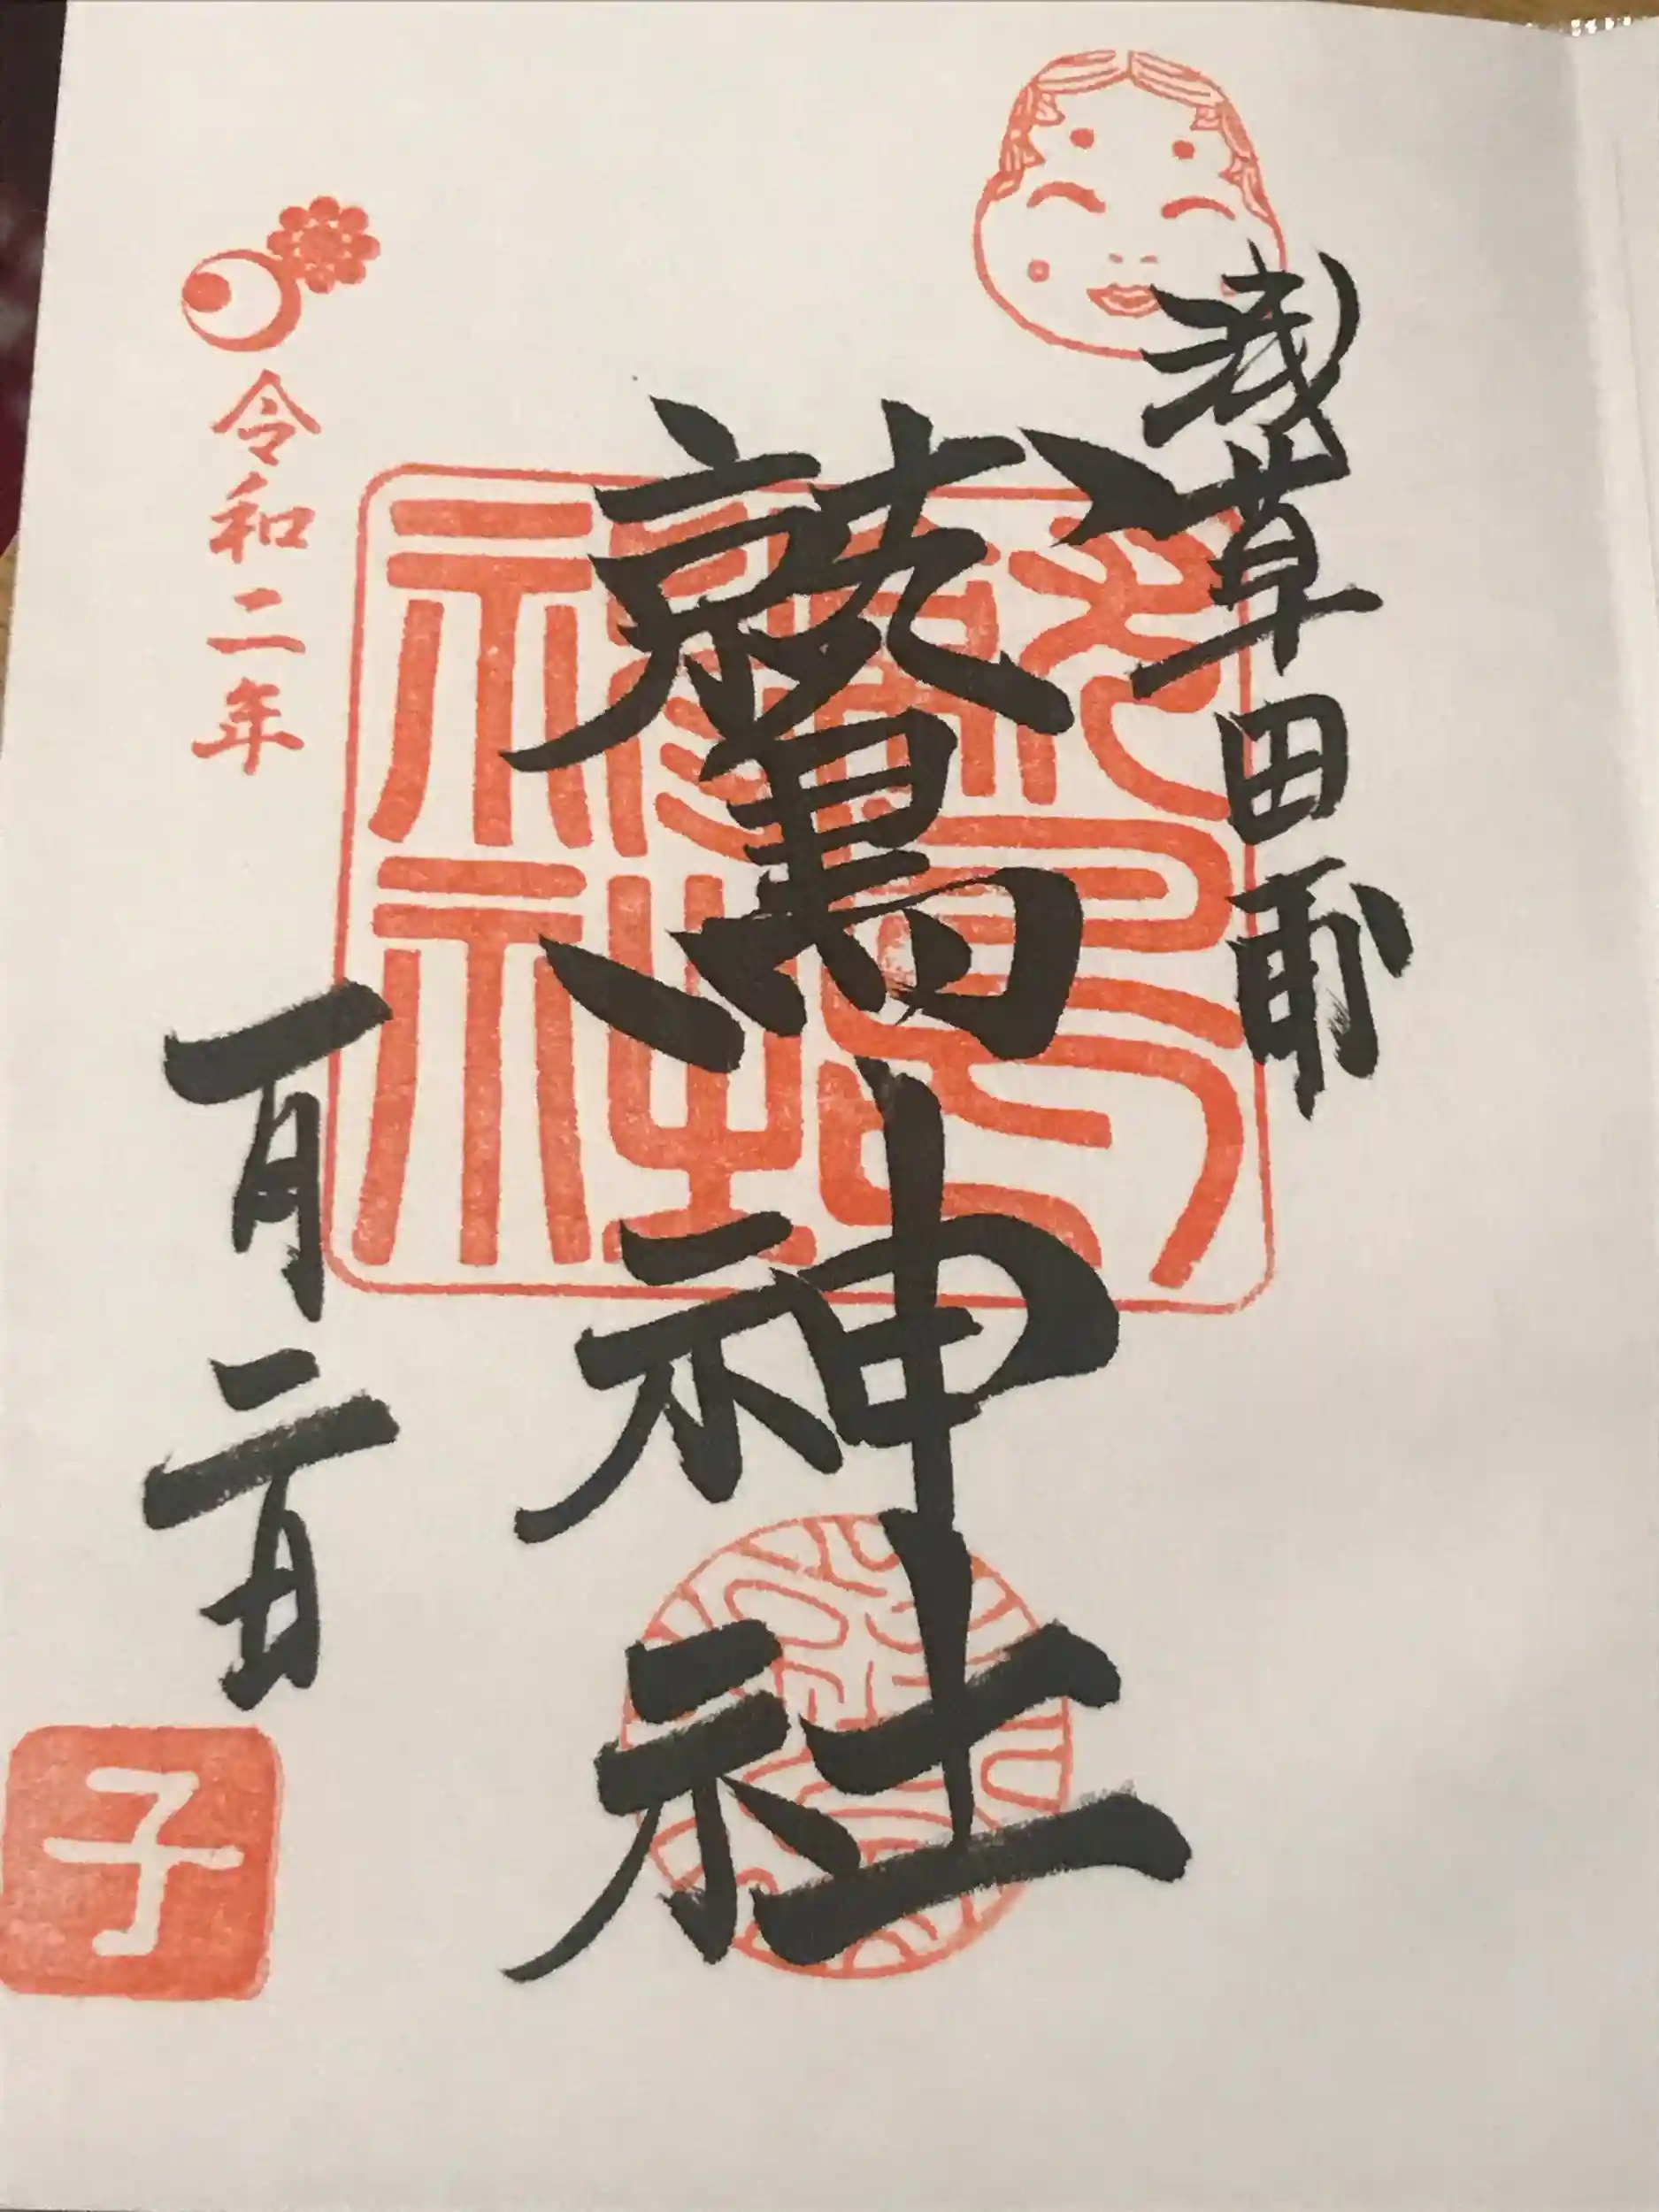 浅草田甫
鷲神社
鷲神社
令和二年
一月二日
子